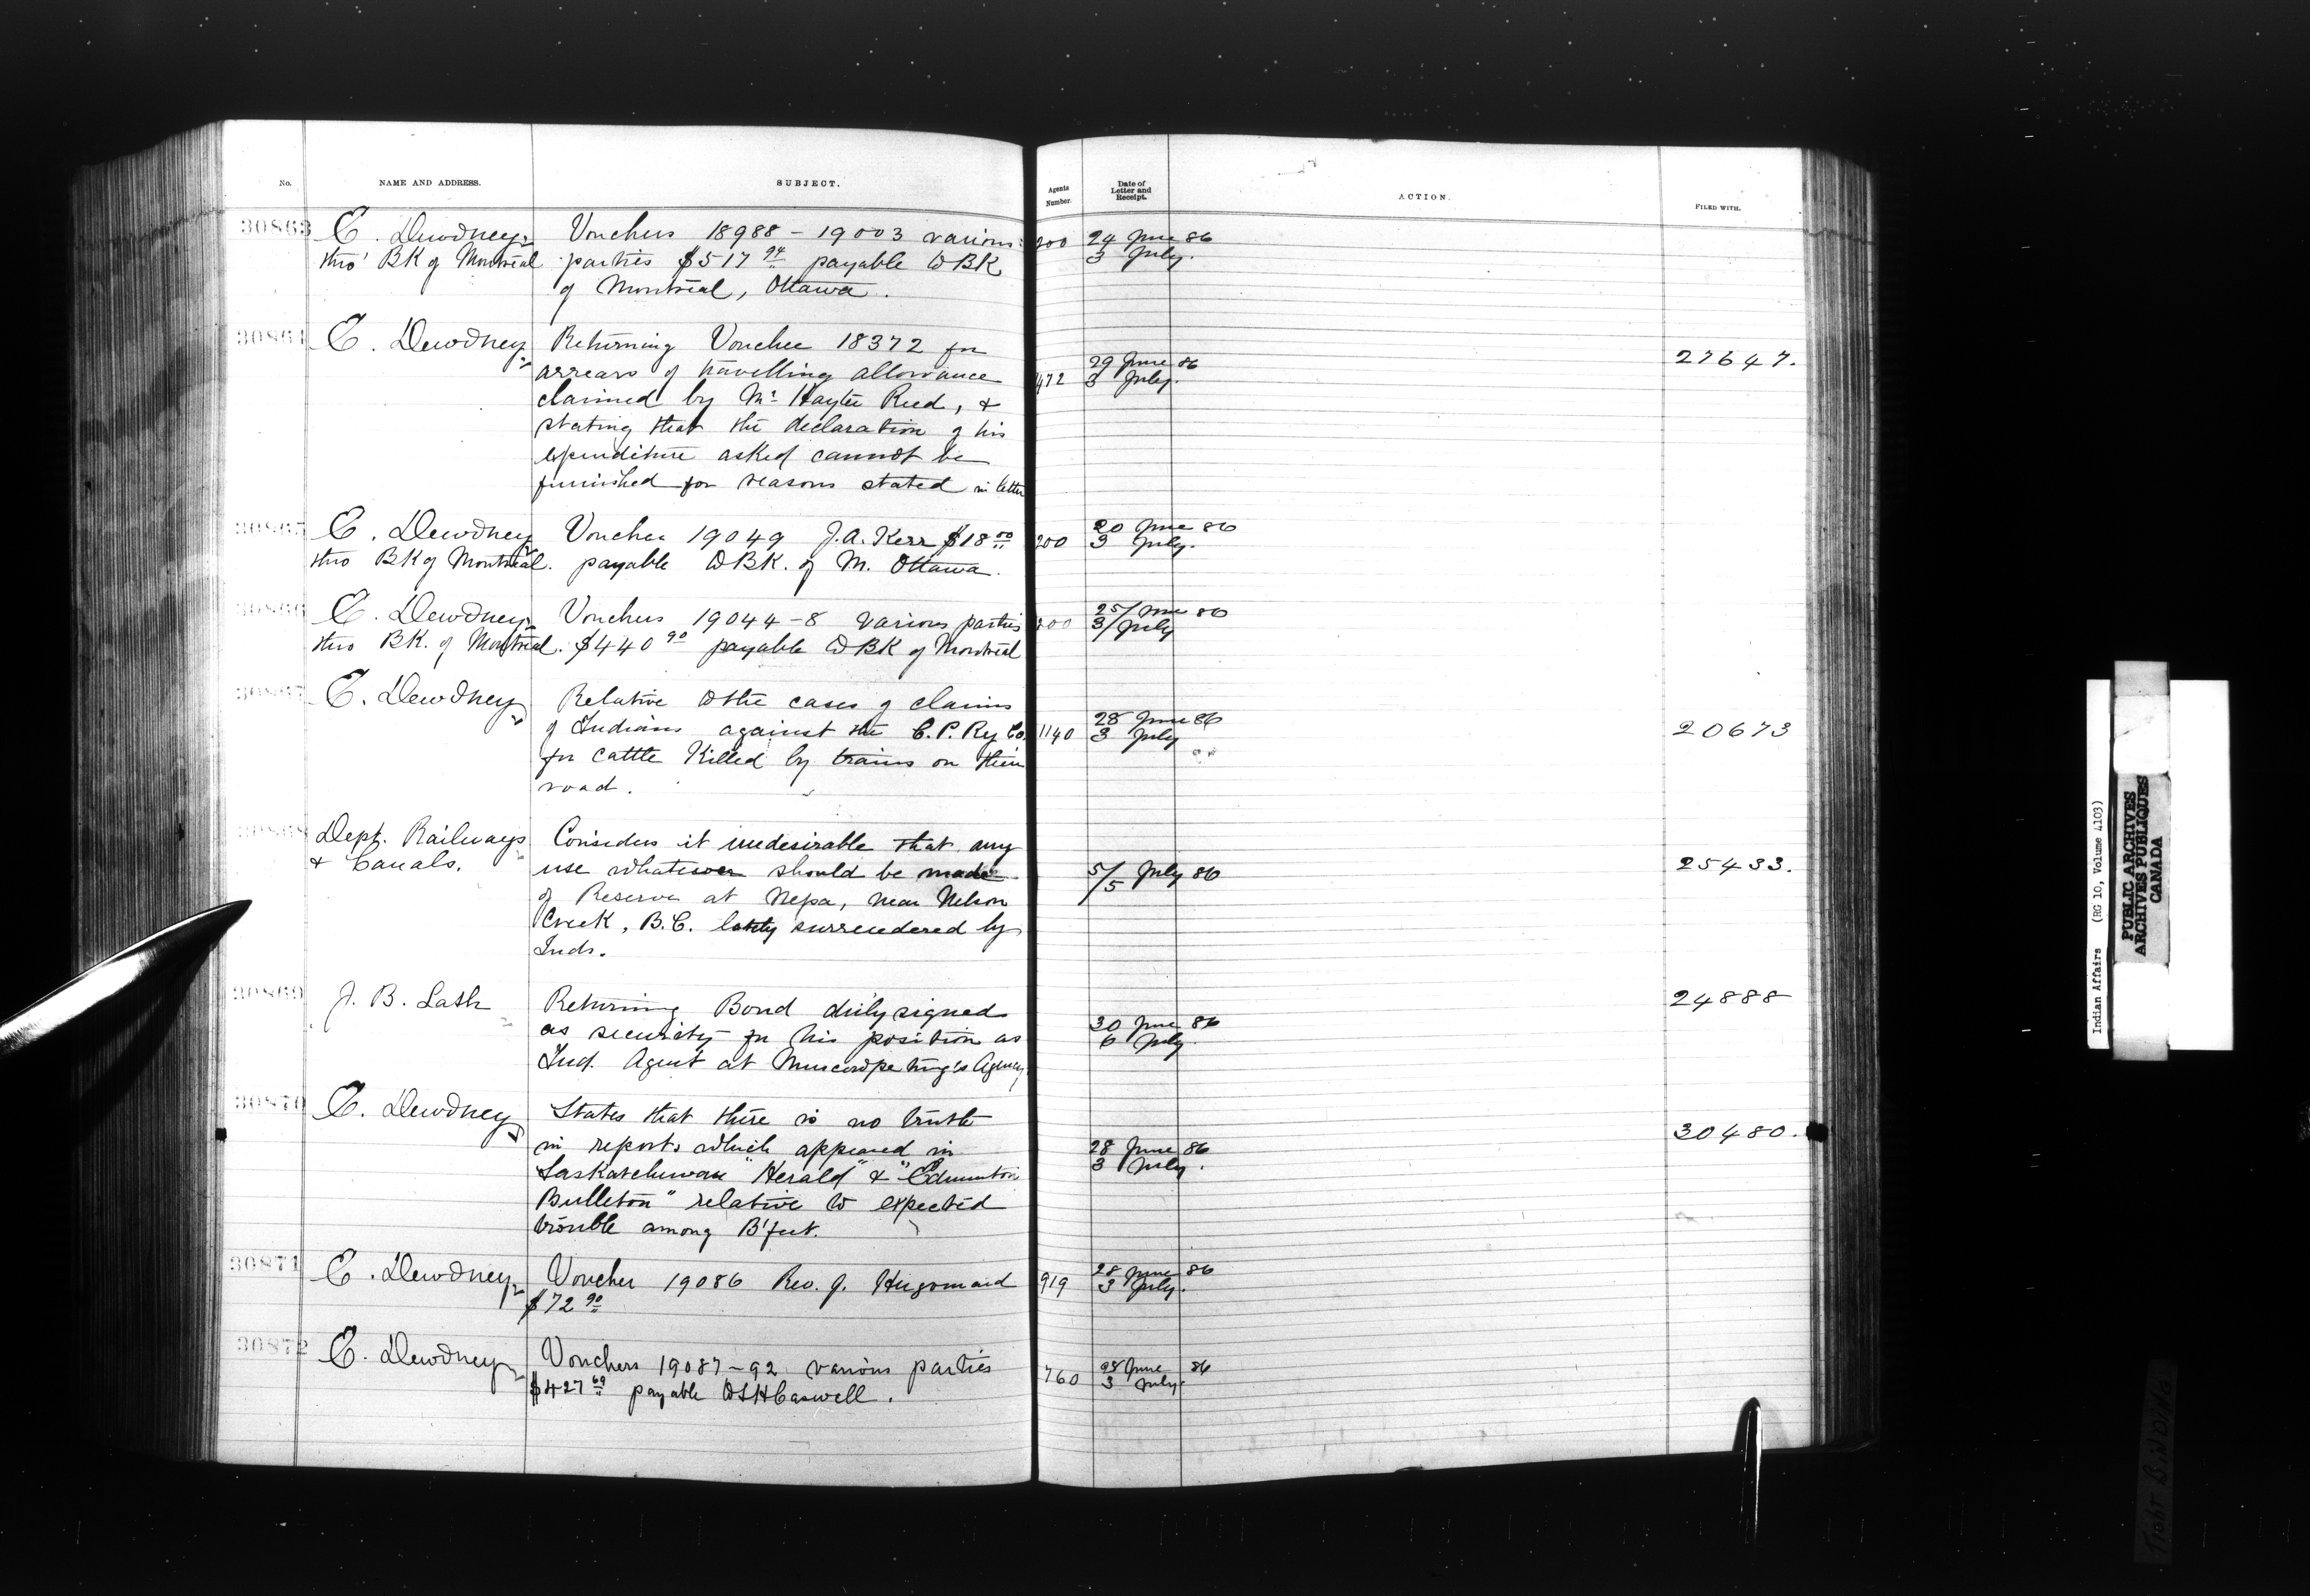 No.
NAME AND ADDRESS.
SUBJECT.
Agents Number.
Date of Letter and Receipt.
ACTION.
FILED WITH.
30863 E. Dewdney Vouchers 18988 – 19003 various 200 24 June 86
thro' BK of Montreal parties $517 94 payable to BK 3 July.
of Montreal, Ottawa.
30864 E. Dewdney Returning Voucher 18372 for 29 June 86 27647.
arrears of travelling allowance 472 3 July.
claimed by Mr Hayter Reed, &
stating that the declaration of his
expenditure asked cannot be
furnished for reasons stated in letter
30865 E. Dewdney Voucher 19049 J.A. Kerr $18 00 200 20 June 86
thro BK of Montreal. payable to BK. of M. Ottawa. 3 July.
30866 E. Dewdney Vouchers 19044–8 various parties 200 25/June 86
thro BK. of Montreal. $440 90 payable to BK of Montreal 3/July
30867 E. Dewdney Relative to the cases of claims 28 June 86 20673
of Indians against the C.P. Ry Co. 1140 3 July
for cattle killed by trains on their
road.
30868 Dept. Railways Considers it undesirable that any 25433.
& Canals. use whatever should be made 5/5 July 86
of Reserve at Nepa, near Nelson
Creek, B.C. lately surrendered by
Inds.
30869 J. B. Lash Returning Bond duly signed 24888
as security for his position as 30 June 86
Ind. Agent at Muscowpetung's Agency 6 July.
30870 E. Dewdney States that there is no truth 30480.
in reports which appeared in 28 June 86
Saskatchewan "Herald" & "Edmonton 3 July.
Bulleton" relative to expected
trouble among B'feet.
30871 E. Dewdney Voucher 19086 Rev. J. Hugonard 919 28 June 86
$72 90 3 July.
30872 E. Dewdney Vouchers 19087–92 various parties 760 28 June 86
$427 69 payable to SH Caswell. 3 July.
Indian Affairs (RG 10, Volume 4103)
PUBLIC ARCHIVES
ARCHIVES PUBLIQUES
CANADA